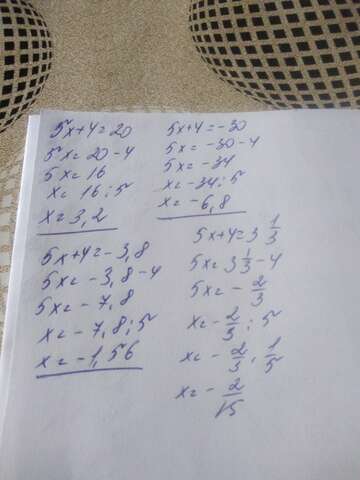 5x+4=20
5x=20-4
5x=16
x=16:5
x=3,2
5x+4=-30
5x=-30-4
5x=-34
x=-34:5
x=-6,8
5x+4=-3,8
5x=-3,8-4
5x=-7,8
x=-7,8:5
x=-1,56
5x+4=3 1/3
5x=3 1/3-4
5x=-2/3
x=-2/3:5
x=-2/3·1/5
x=-2/15